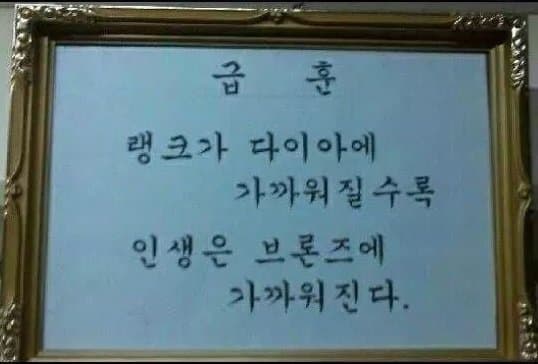 급 훈
랭크가 다이아에
가까워질수록
인생은 브론즈에
가까워진다.